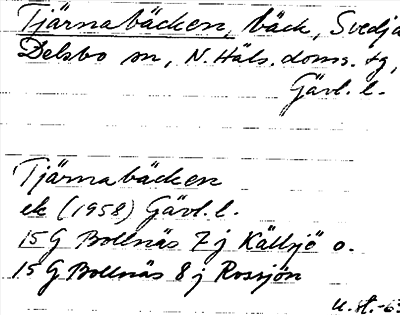 Tjärnabäcken, bäck, Svedja
Delsbo sn, N. Häls. doms. tg,
Gävl. l.
Tjärnabäcken
ek (1958) Gävl. l.
15 G Bollnäs 7 j Källsjö o.
15 G Bollnäs 8 j Rossjön
U. St. -63